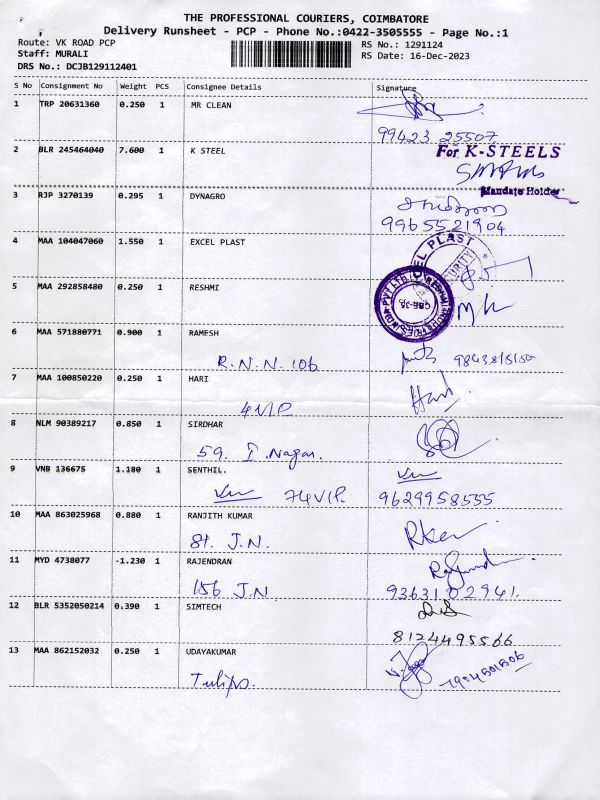 THE PROFESSIONAL COURIERS, COIMBATORE
Delivery Runsheet - PCP - Phone No.:0422-3505555 - Page No.:1
Route: VK ROAD PCP
Staff: MURALI
DRS No.: DCJB129112401
RS No.: 1291124
RS Date: 16-Dec-2023
S No Consignment No Weight PCS Consignee Details Signature
1 TRP 20631360 0.250 1 MR CLEAN
99423 25507
2 BLR 245464040 7.600 1 K STEEL
For K-STEELS
Mandate Holder
3 RJP 3270139 0.295 1 DYNAGRO
9965521904
4 MAA 104047060 1.550 1 EXCEL PLAST
EL PLAST
5 MAA 292858480 0.250 1 RESHMI
CBE-35
6 MAA 571880771 0.900 1 RAMESH
R.N.N. 106
7 MAA 100850220 0.250 1 HARI
4 VIP
Hari
8 NLM 90389217 0.850 1 SIRDHAR
59. T. Nagar.
9 VNB 136675 1.180 1 SENTHIL.
74 VIP.
9629958555
10 MAA 863025968 0.880 1 RANJITH KUMAR
84. J.N.
11 MYD 4738077 -1.230 1 RAJENDRAN
156 J.N
93631 02941.
12 BLR 5352050214 0.390 1 SIMTECH
8124495566
13 MAA 862152032 0.250 1 UDAYAKUMAR
Tulips.